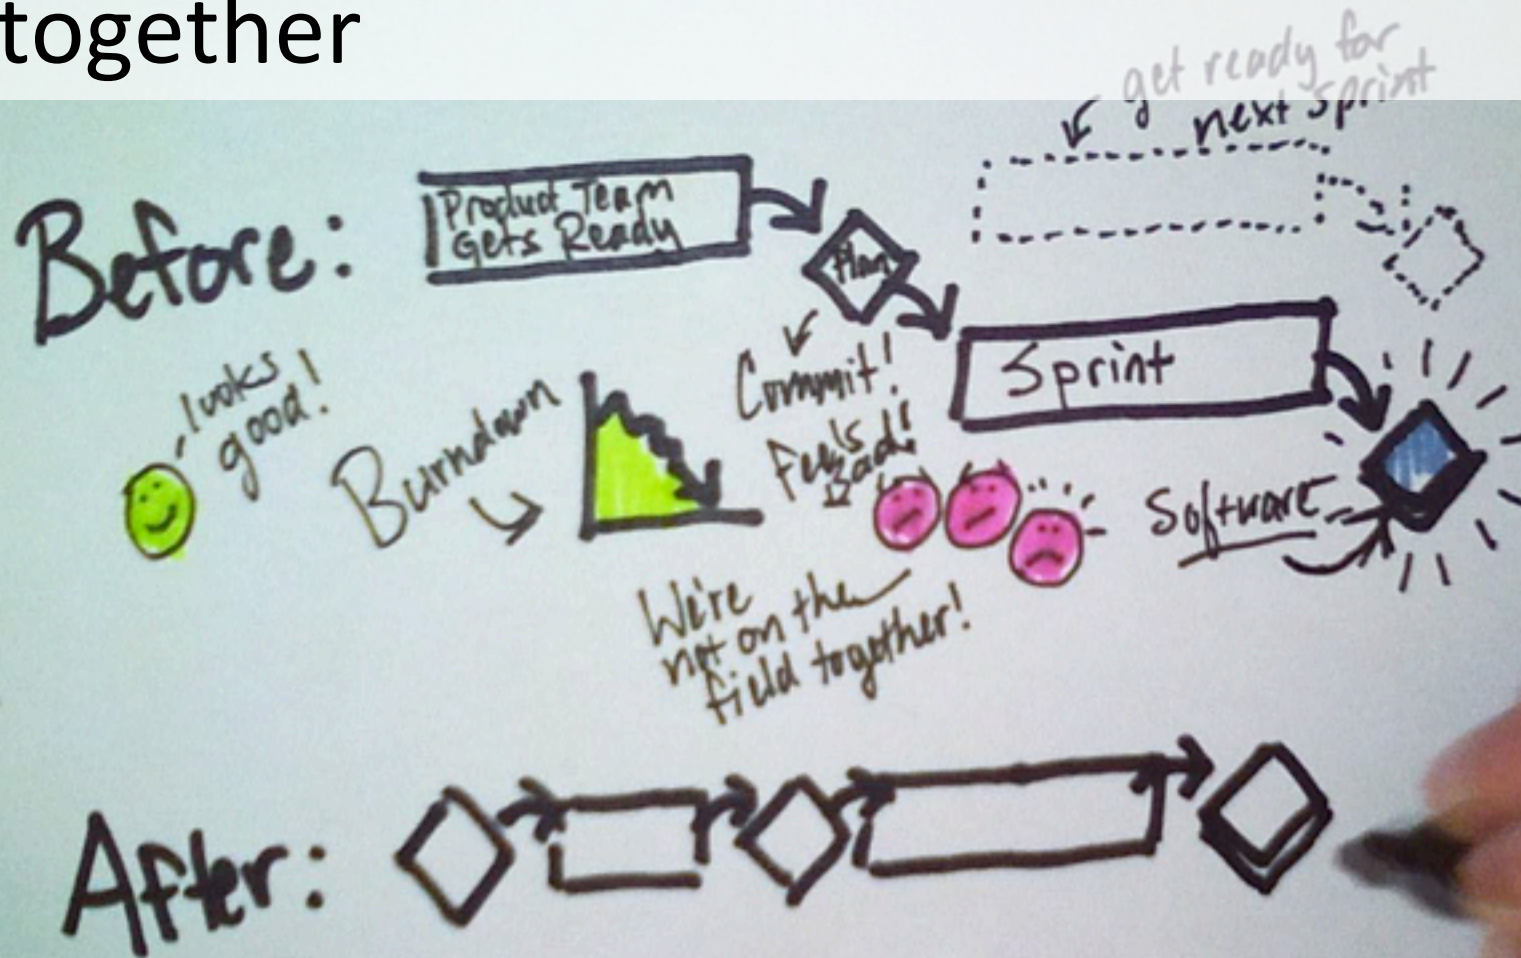 together
get ready for
next sprint
Before:
Product Team
Gets Ready
Plan
Sprint
looks
good!
Burndown
Commit!
Feels
Bad!
Software
We're
not on the
field together!
After: